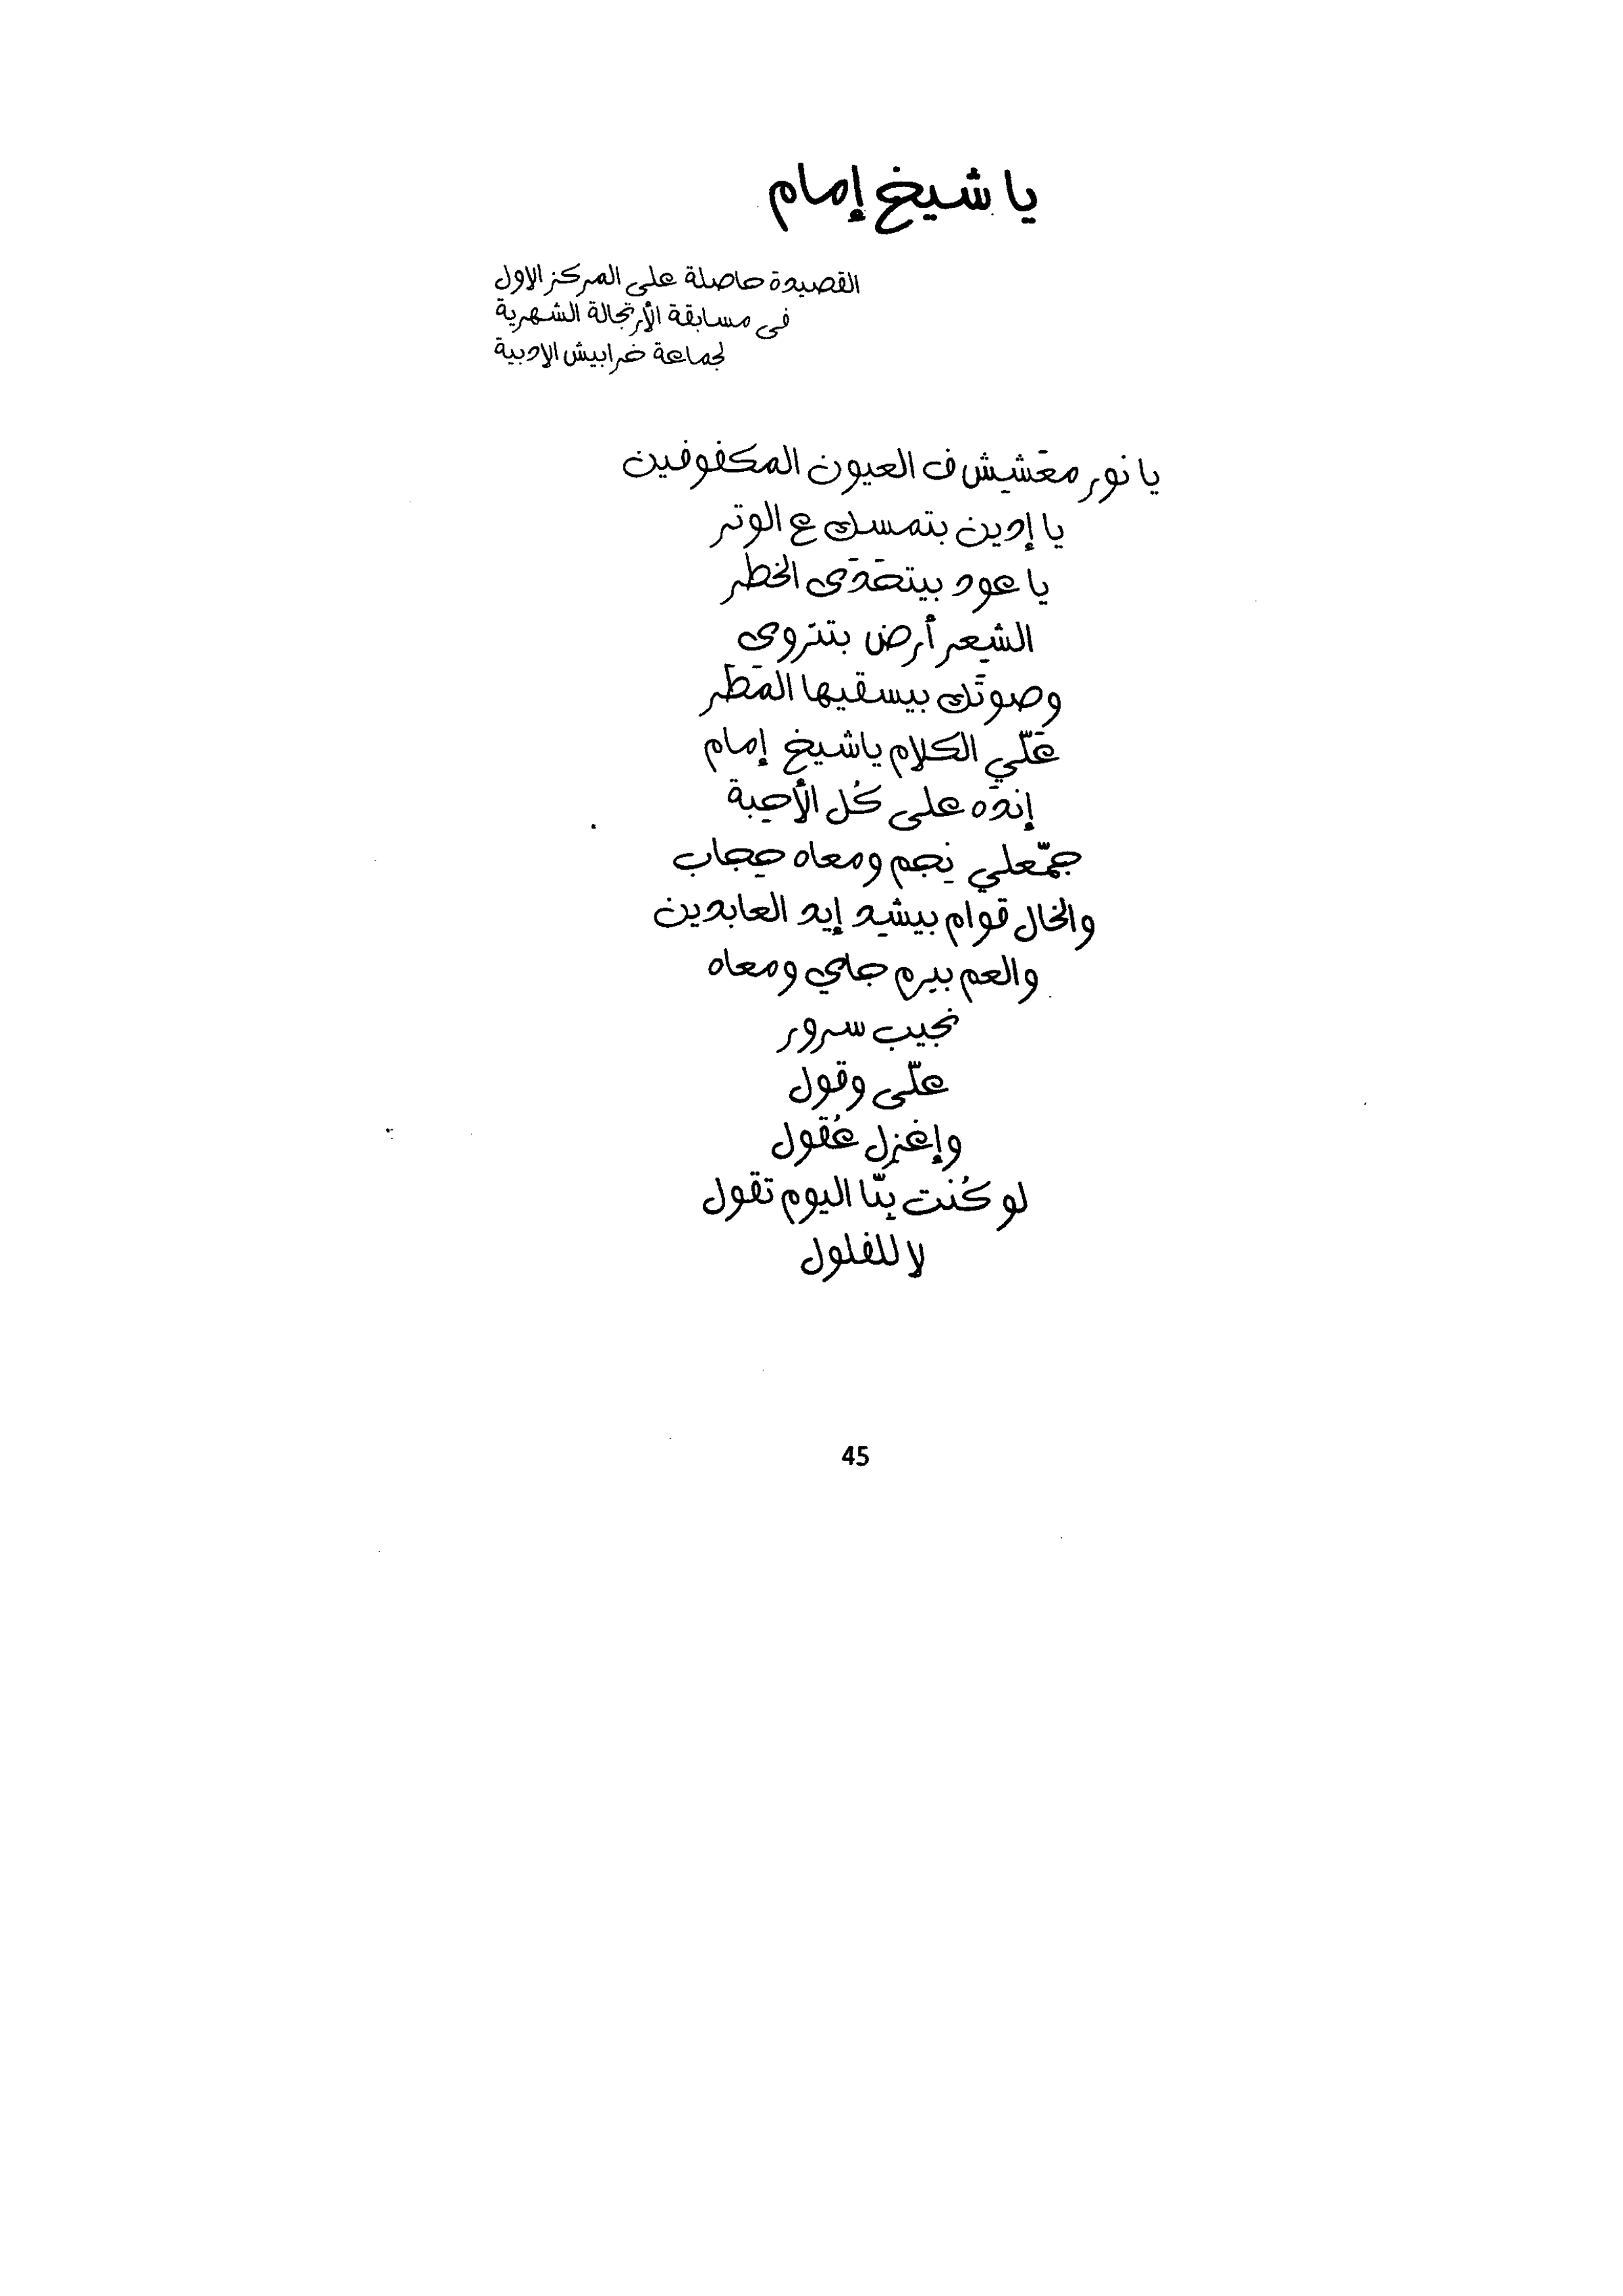 يا شيخ إمام
القصيدة حاصلة على المركز الاول
فى مسابقة الأرتجالة الشهرية
لجماعة خرابيش الادبية
يا نور معَشيش ف العيون المكفوفين
يا إدين بتمسك ع الوتر
يا عود بيتحَدَى الخطر
الشِعر أرض بتتروى
وصوتَك بيسقيها المَطَر
عَلّي الكلام ياشيخ إمام
إندَه على كُل الأحِبة
جمّعلي نِجم ومعاه حِجاب
والخال قوام بيشِد إيد العابدين
والعم بيرم جاي ومعاه
نجيب سرور
علّى وقول
وإغزِل عُقول
لو كُنت بِنّا اليوم تقول
لا للفلول
45